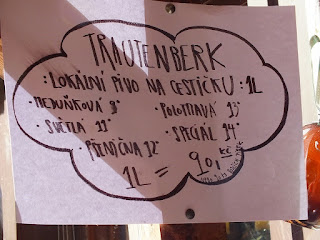 TRAUTENBERK
:LOKÁLNÍ PIVO NA CESTIČKU: 1L
·MEDUŇKOVÁ 9° ·POLOTMAVÁ 13°
·SVĚTLÁ 11° ·SPECIÁL 14°
·PŠENIČNÁ 12°
1L = 90,- Kč